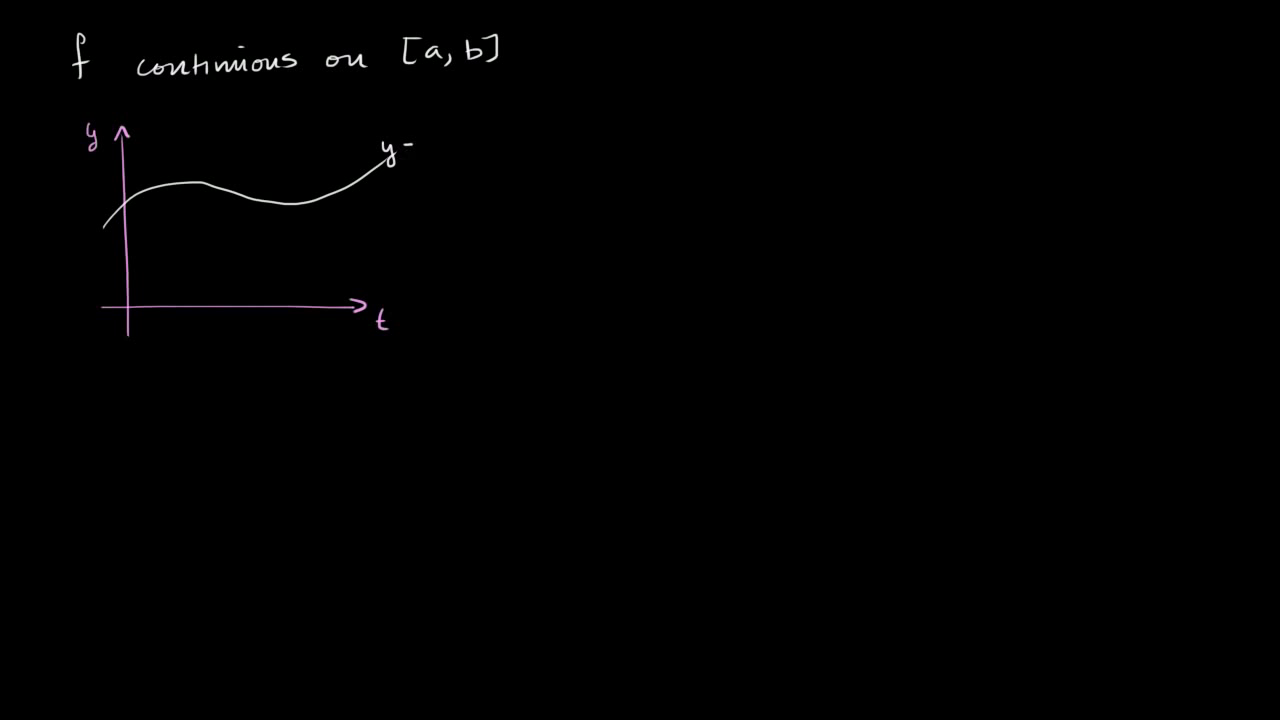 f continious on [a, b]
y
y -
t